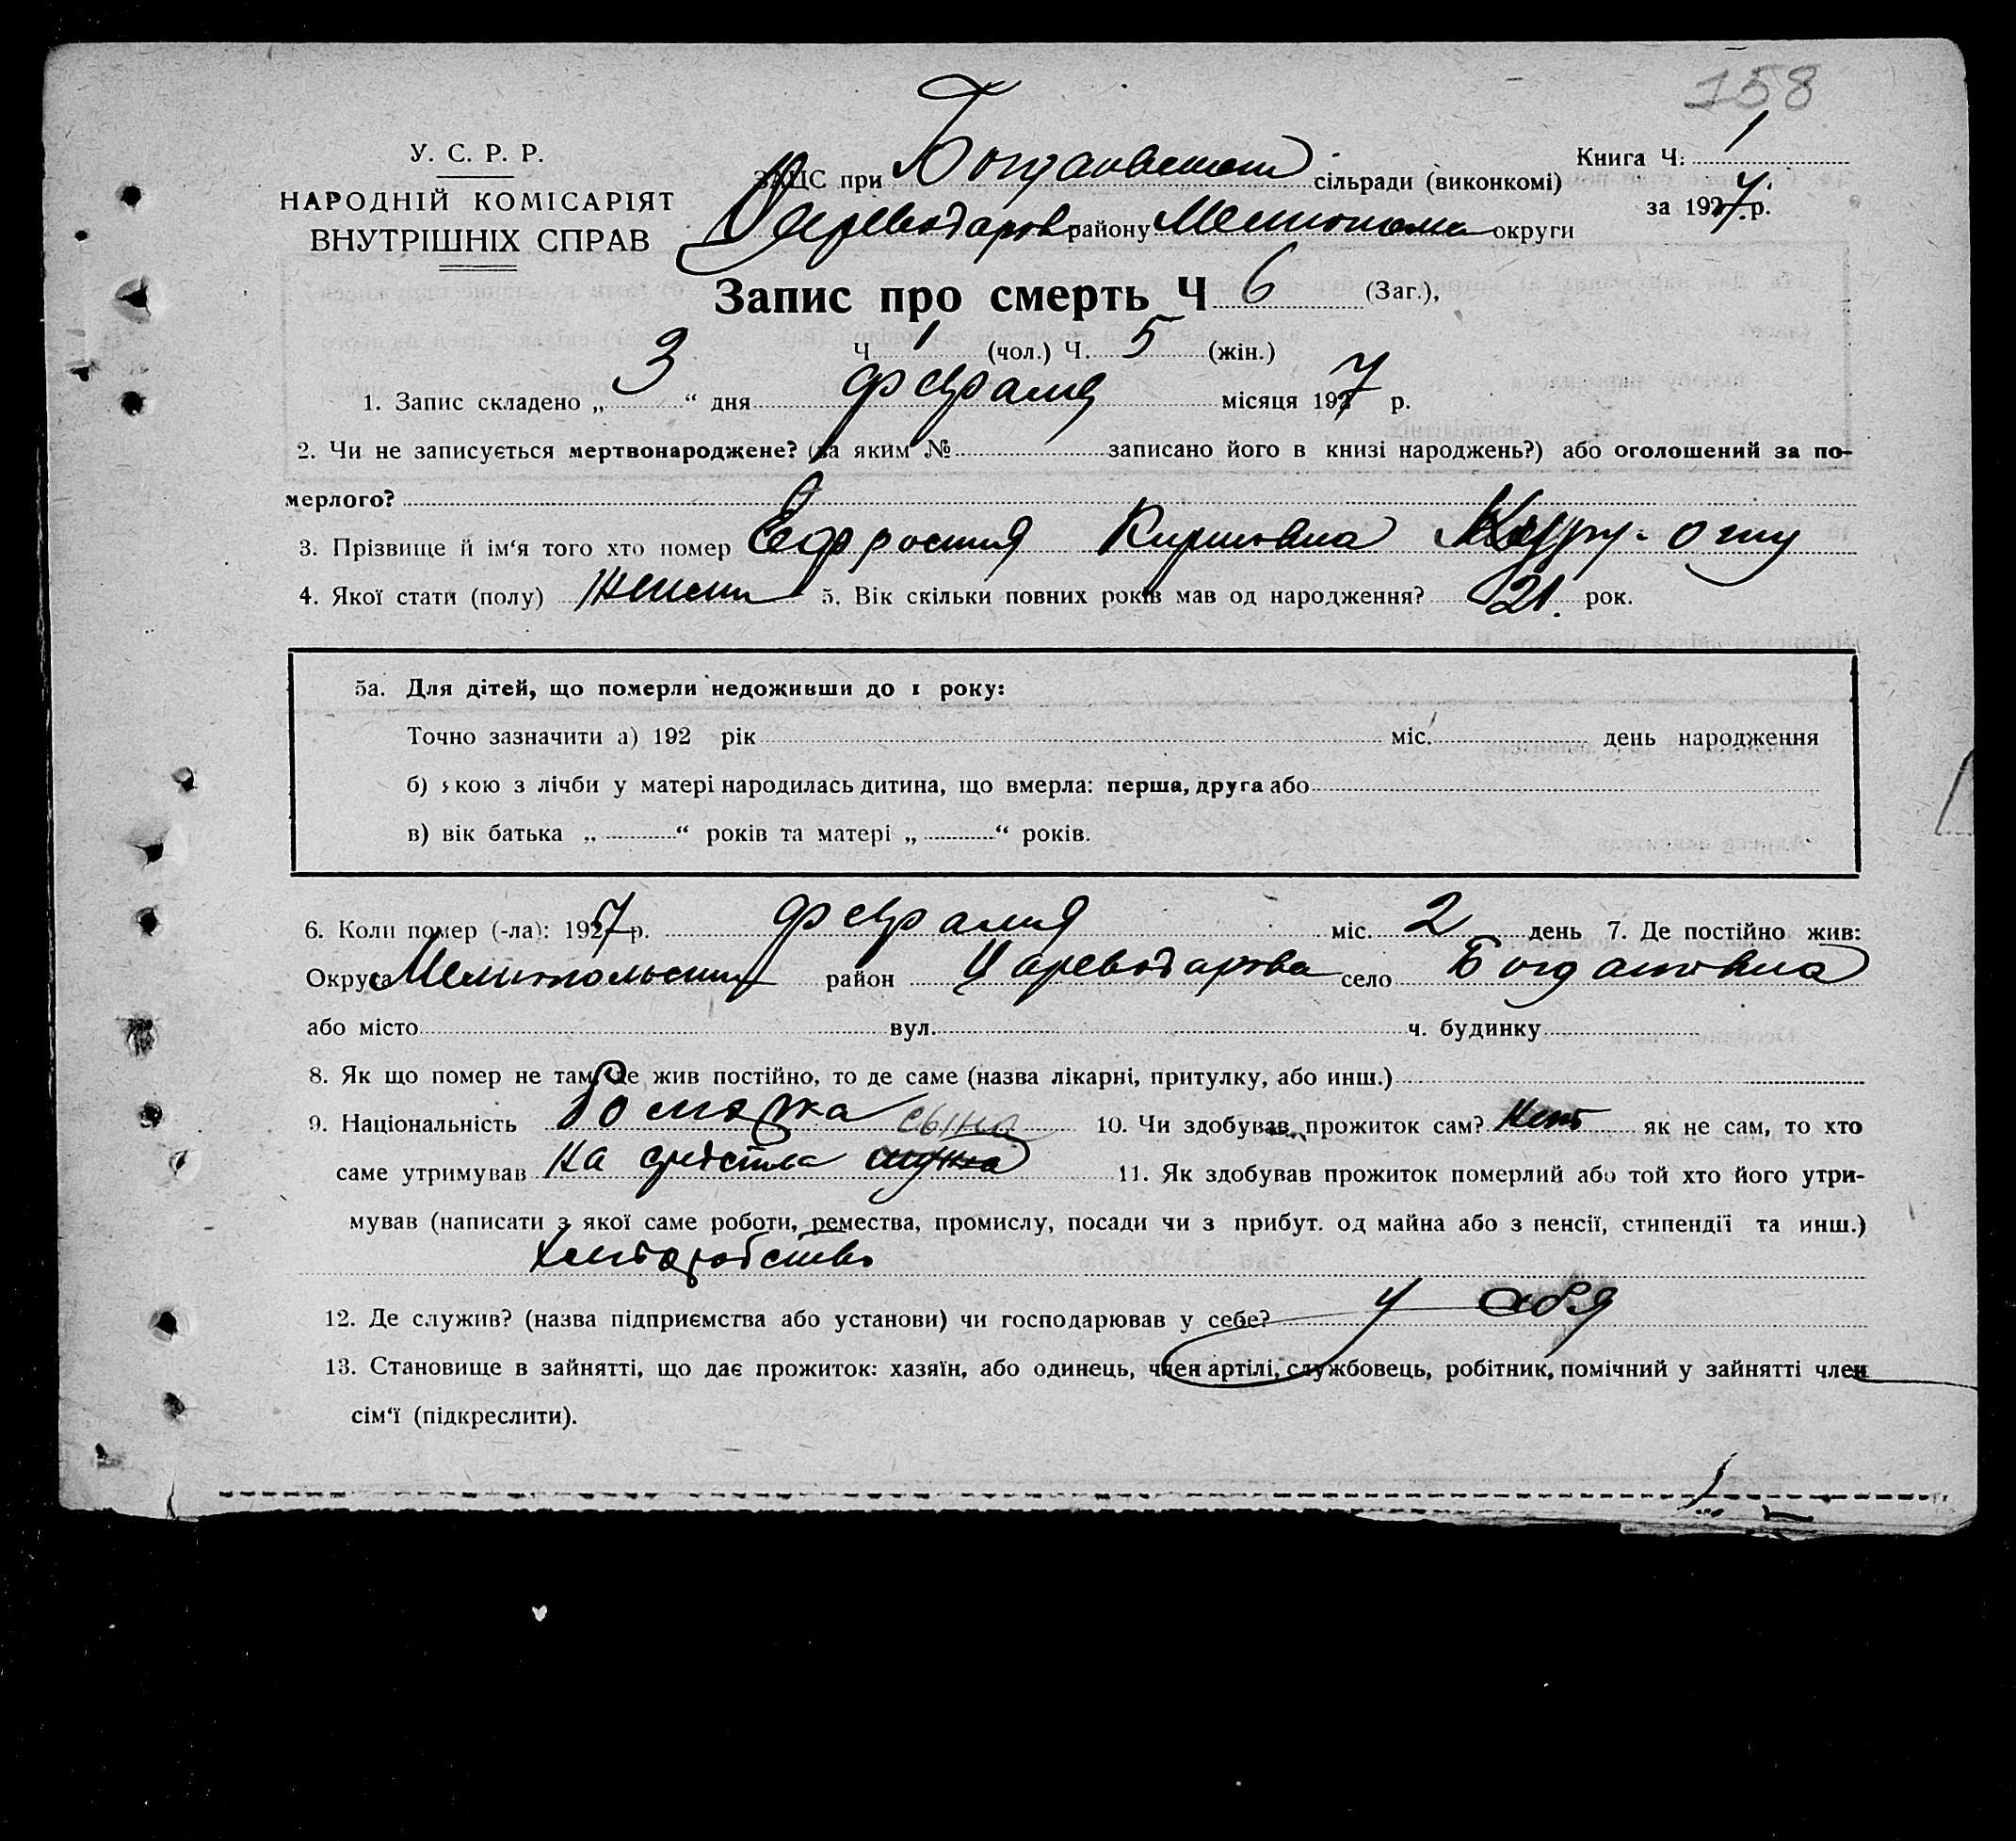 158
У. С. Р. Р.
НАРОДНІЙ КОМІСАРІЯТ
ВНУТРІШНІХ СПРАВ
ЗАЦС при сільради (виконкомі)
району округи
Книга Ч: 1
за 1927 р.
Запис про смерть Ч 6 (Заг.),
Ч 1 (чол.) Ч. 5 (жін.)
1. Запис складено „ 3 “ дня февраля місяця 1927 р.
2. Чи не записується мертвонароджене? (за яким № записано його в книзі народжень?) або оголошений за по-
мерлого?
3. Прізвище й ім‘я того хто помер Кирилловна
4. Якої стати (полу) 5. Вік скільки повних років мав од народження? 21. рок.
5а. Для дітей, що померли недоживши до 1 року:
Точно зазначити а) 192 рік міс. день народження
б) якою з лічби у матері народилась дитина, що вмерла: перша, друга або
в) вік батька „ “ років та матері „ “ років.
6. Коли помер (-ла): 1927 р. февраля міс. 2 день 7. Де постійно жив:
Округа район село Богдановка
або місто вул. ч. будинку
8. Як що помер не там, де жив постійно, то де саме (назва лікарні, притулку, або инш.)
9. Національність сына 10. Чи здобував прожиток сам? Нет як не сам, то хто
саме утримував на средства мужа 11. Як здобував прожиток померлий або той хто його утри-
мував (написати з якої саме роботи, ремества, промислу, посади чи з прибут. од майна або з пенсії, стипендії та инш.)
12. Де служив? (назва підприємства або установи) чи господарював у себе? у себя
13. Становище в зайнятті, що дає прожиток: хазяїн, або одинець, член артілі, службовець, робітник, помічний у зайнятті член
сім‘ї (підкреслити).